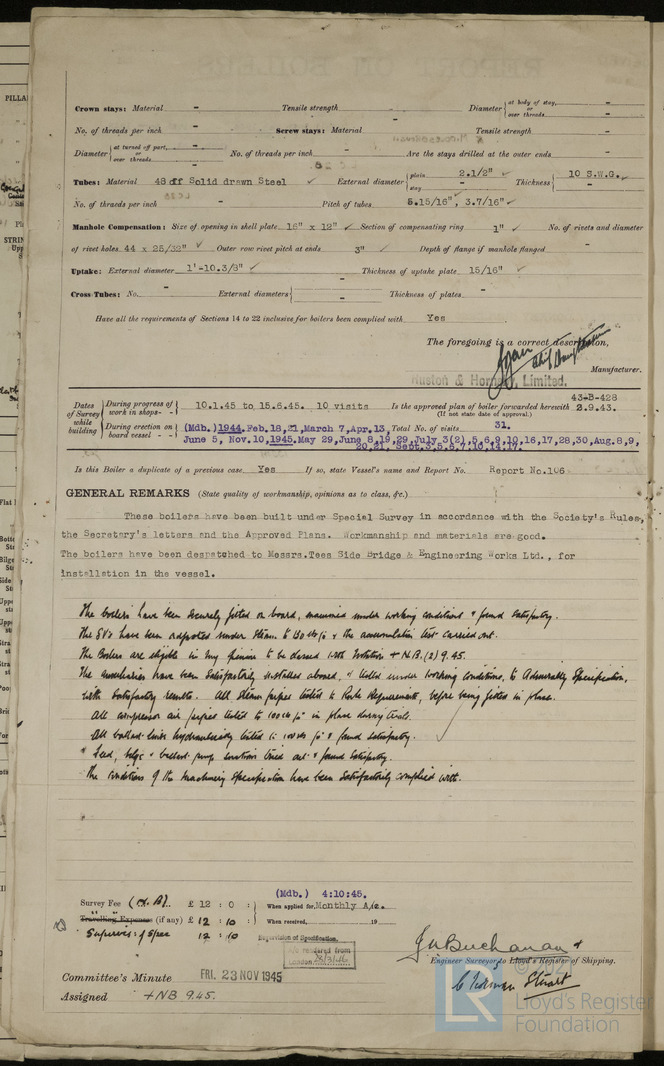 Crown stays: Material - Tensile strength - Diameter { at body of stay, - or over threads. -
No. of threads per inch - Screw stays: Material - Tensile strength -
Diameter { at turned off part, - or over threads - No. of threads per inch - Are the stays drilled at the outer ends -
Tubes: Material 48 off Solid drawn Steel ✓ External diameter { plain 2.1/2" ✓ stay - Thickness { 10 S.W.G. -
No. of threads per inch - Pitch of tubes 5.15/16" ✓ 3.7/16" ✓
Manhole Compensation: Size of opening in shell plate 16" x 12" ✓ Section of compensating ring 1" ✓ No. of rivets and diameter
of rivet holes 44 x 25/32" ✓ Outer row rivet pitch at ends 3" ✓ Depth of flange if manhole flanged -
Uptake: External diameter 1'-10.3/8" ✓ Thickness of uptake plate 15/16" ✓
Cross Tubes: No. - External diameters { - - Thickness of plates -
Have all the requirements of Sections 14 to 22 inclusive for boilers been complied with Yes
The foregoing is a correct description,
Manufacturer.
Ruston & Hornsby, Limited.
Dates of Survey while building
During progress of work in shops - - 10.1.45 to 15.6.45. 10 visits Is the approved plan of boiler forwarded herewith 43-B-428 2.9.43.
(If not state date of approval.)
During erection on board vessel - - (Mdb.) 1944. Feb.18,21,March 7,Apr.13, Total No. of visits 31.
June 5, Nov.10,1945.May 29,June 8,19,29,July 3(2),5,6,9,10,16,17,28,30,Aug.8,9,
20,21, Sept.3,5,6,7,10,14,17.
Is this Boiler a duplicate of a previous case Yes If so, state Vessel's name and Report No. Report No.106
GENERAL REMARKS (State quality of workmanship, opinions as to class, &c.)
These boilers have been built under Special Survey in accordance with the Society's Rules,
the Secretary's letters and the Approved Plans. Workmanship and materials are good.
The boilers have been despatched to Messrs.Tees Side Bridge & Engineering Works Ltd., for
installation in the vessel.
The boilers have been securely fitted on board, examined under working conditions & found satisfactory.
The SV's have been adjusted under steam to 130 lb/□" & the accumulation test carried out.
The Boilers are eligible in my opinion to be classed with notation + N.B.(2) 9.45.
The auxiliaries have been satisfactorily installed aboard, & tested under working conditions, to Admiralty Specification,
with satisfactory results. All steam pipes tested to Rule Requirements, before being fitted in place.
All compressor air pipes tested to 100 lb/□" in place during trials.
All ballast lines hydraulically tested to 100 lb/□" & found satisfactory.
" feed, bilge & ballast pump suctions tried out & found satisfactory.
The conditions of the Machinery Specification have been satisfactorily complied with.
(Mdb.) 4:10:45.
Survey Fee £ 12 : 0 : When applied for, Monthly A/c.
Travelling Expenses (if any) £ 12 : 10 : When received, 19
Supervis: of Spec 12 : 10 Supervision of Specification.
A/c rendered from London
J W Buchanan &
Engineer Surveyor to Lloyd's Register of Shipping.
Stuart
Committee's Minute FRI. 23 NOV 1945
Assigned + NB 9.45.
LR
Lloyd's Register
Foundation
PILLA
STRIN